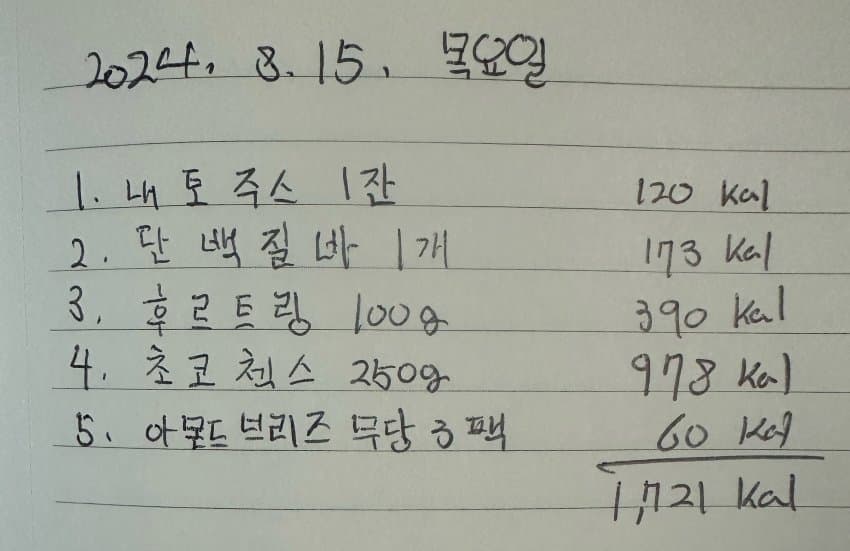 2024. 8. 15. 목요일
1. 내토주스 1잔 120 Kal
2. 단백질바 1개 173 Kal
3. 후르트링 100g 390 Kal
4. 초코첵스 250g 978 Kal
5. 아몬드브리즈 무당 3팩 60 Kal
1,721 Kal